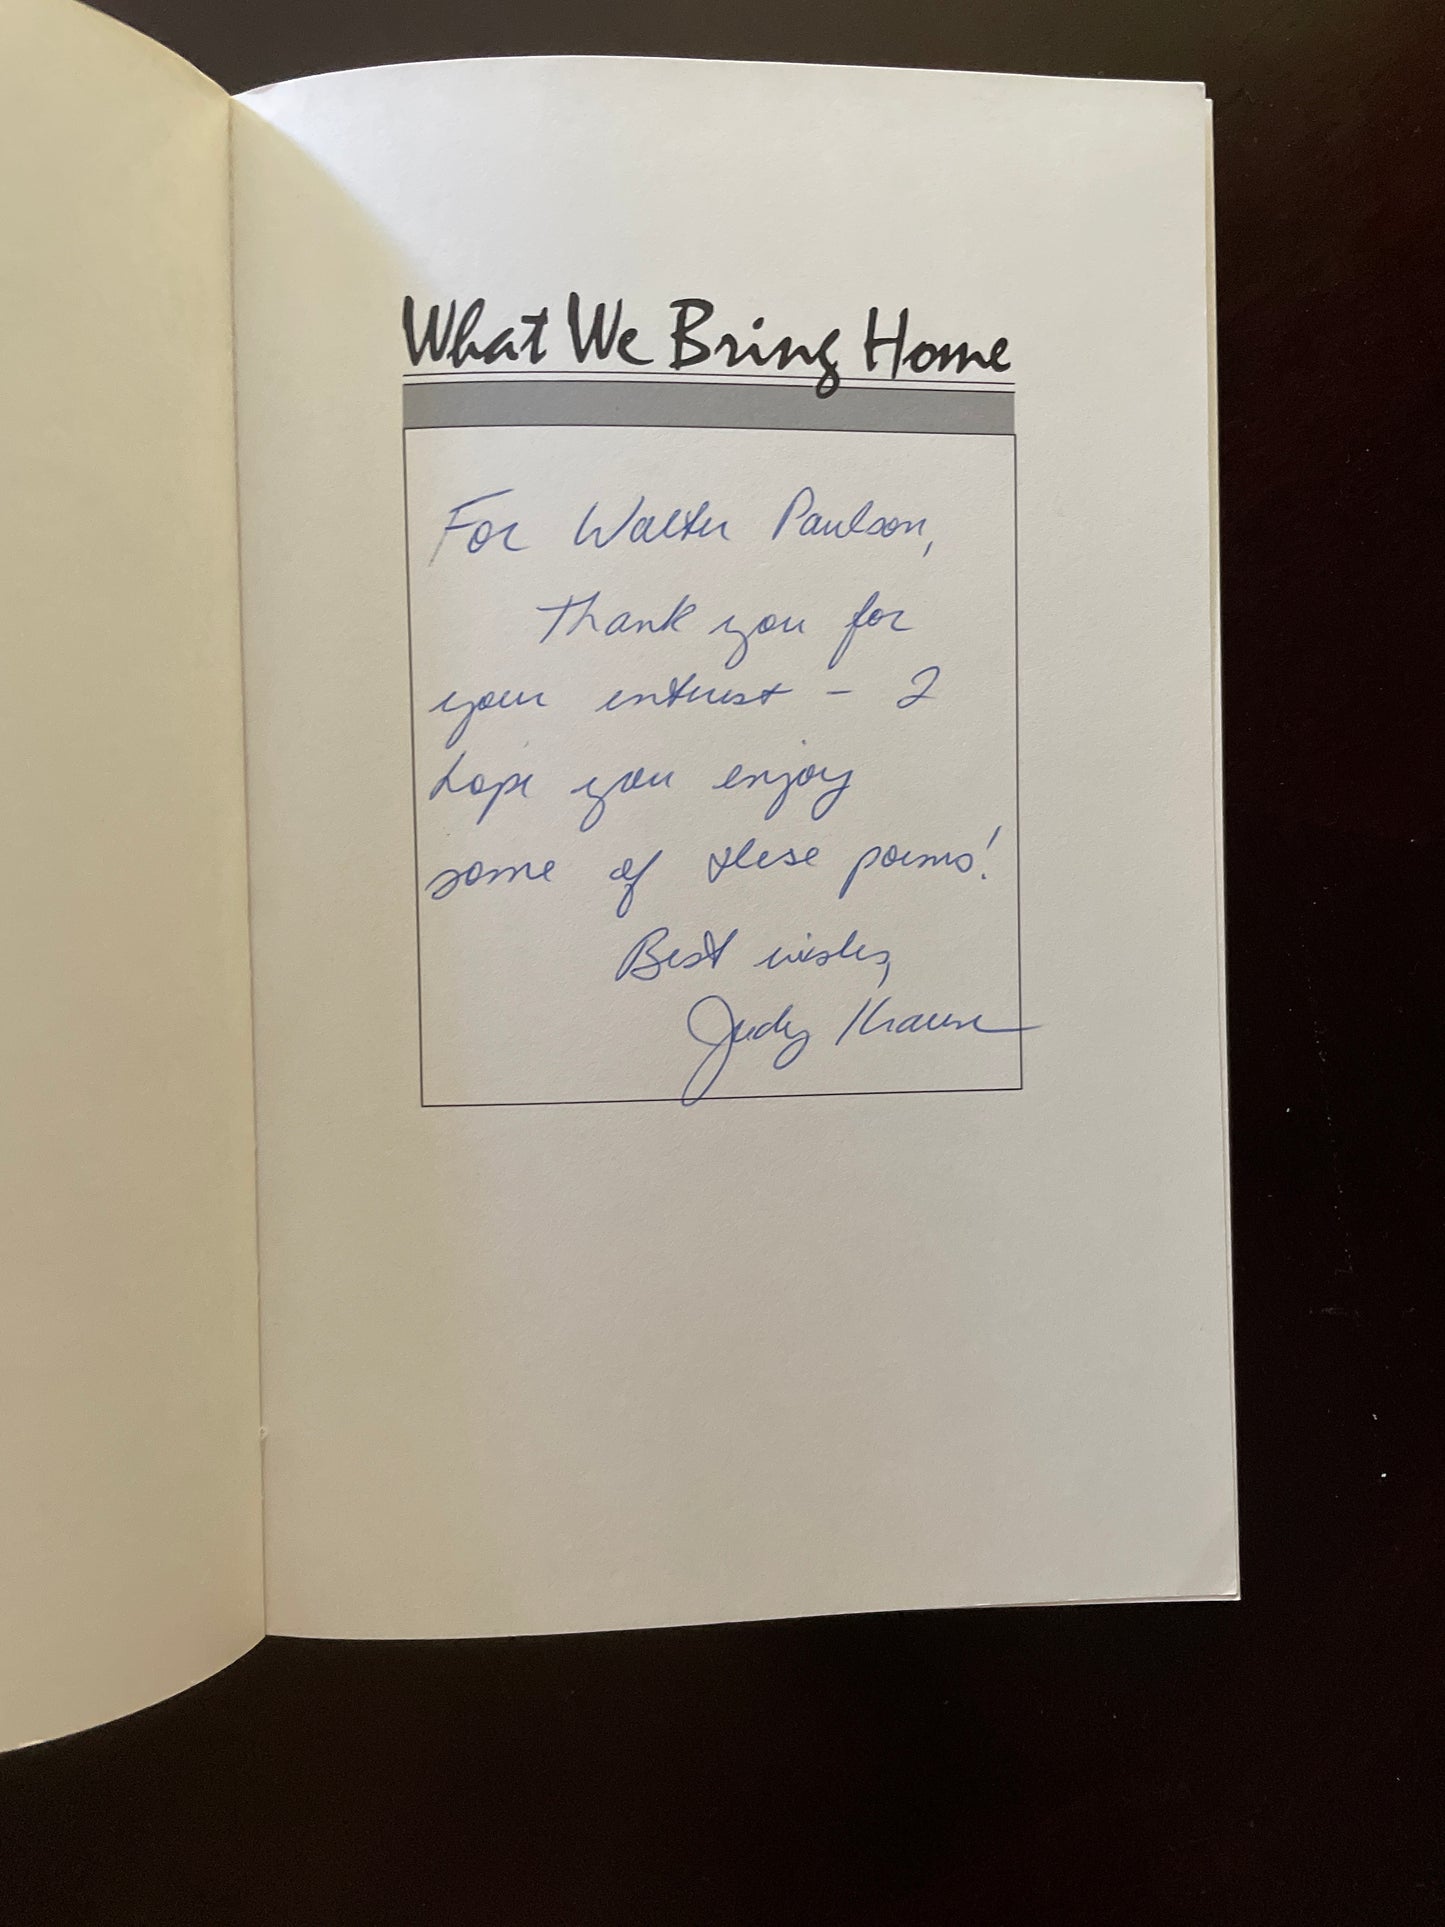 What We Bring Home
For Walter Paulson,
Thank you for
your interest – I
hope you enjoy
some of these poems!
Best wishes,
Judy Krause